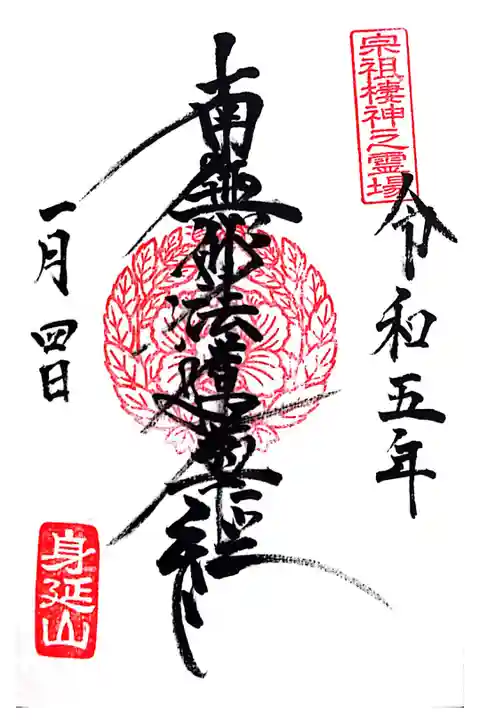 宗祖棲神之霊場
令和五年
南無妙法蓮華経
一月四日
身延山